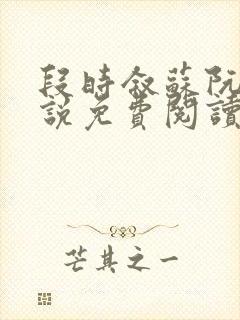 段時敘蘇阮
說免費閱讀
芒其之一